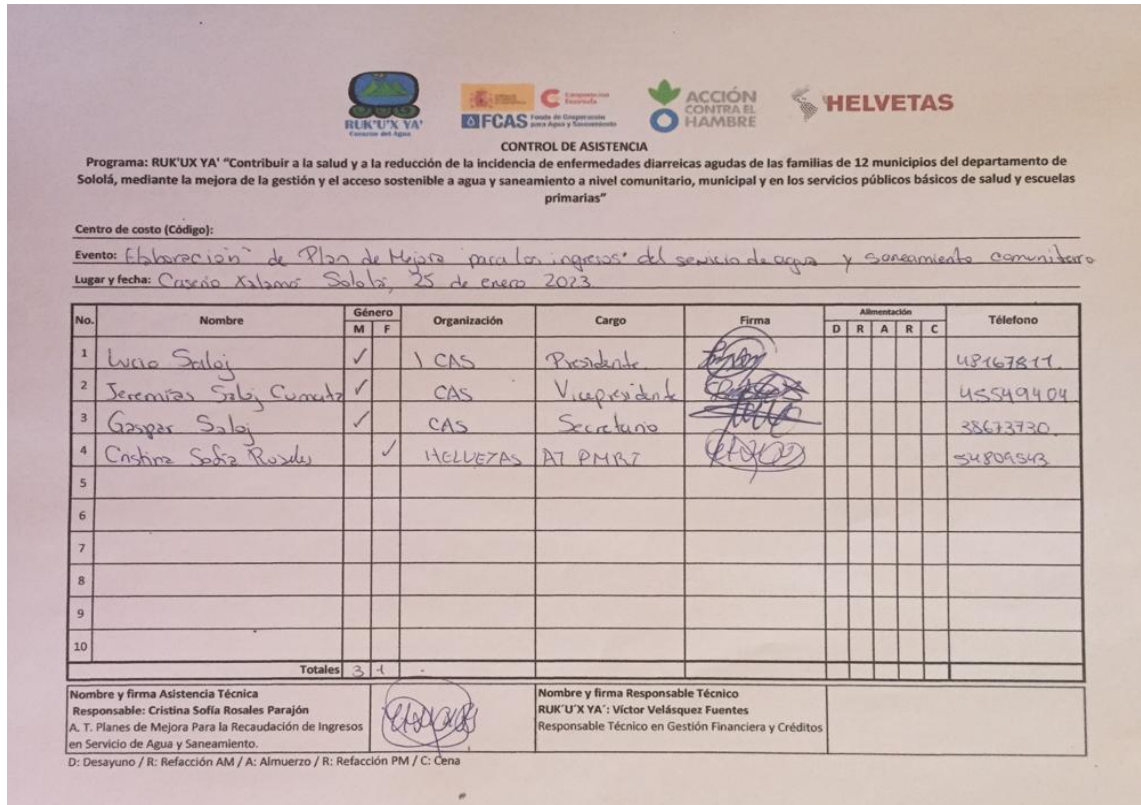 RUK'U'X YA'
Corazón del Agua
Cooperación Española
FCAS Fondo de Cooperación para Agua y Saneamiento
ACCIÓN CONTRA EL HAMBRE
HELVETAS
CONTROL DE ASISTENCIA
Programa: RUK'UX YA' "Contribuir a la salud y a la reducción de la incidencia de enfermedades diarreicas agudas de las familias de 12 municipios del departamento de
Sololá, mediante la mejora de la gestión y el acceso sostenible a agua y saneamiento a nivel comunitario, municipal y en los servicios públicos básicos de salud y escuelas
primarias"
Centro de costo (Código):
Evento: Elaboración de Plan de Mejora para los ingresos del servicio de agua y saneamiento comunitario
Lugar y fecha: Caserío Xalamá Sololá, 25 de enero 2023.
No. Nombre Género M F Organización Cargo Firma Alimentación D R A R C Télefono
1 Lucio Saloj ✓ CAS Presidente 48167811
2 Jeremías Saloj Cumatz ✓ CAS Vicepresidente 45549404
3 Gaspar Saloj ✓ CAS Secretario 38673730
4 Cristina Sofía Rosales ✓ HELVETAS AT PMRI 54809543
5
6
7
8
9
10
Totales 3 1
Nombre y firma Asistencia Técnica
Responsable: Cristina Sofía Rosales Parajón
A. T. Planes de Mejora Para la Recaudación de Ingresos
en Servicio de Agua y Saneamiento.
Nombre y firma Responsable Técnico
RUK´U´X YA´: Víctor Velásquez Fuentes
Responsable Técnico en Gestión Financiera y Créditos
D: Desayuno / R: Refacción AM / A: Almuerzo / R: Refacción PM / C: Cena